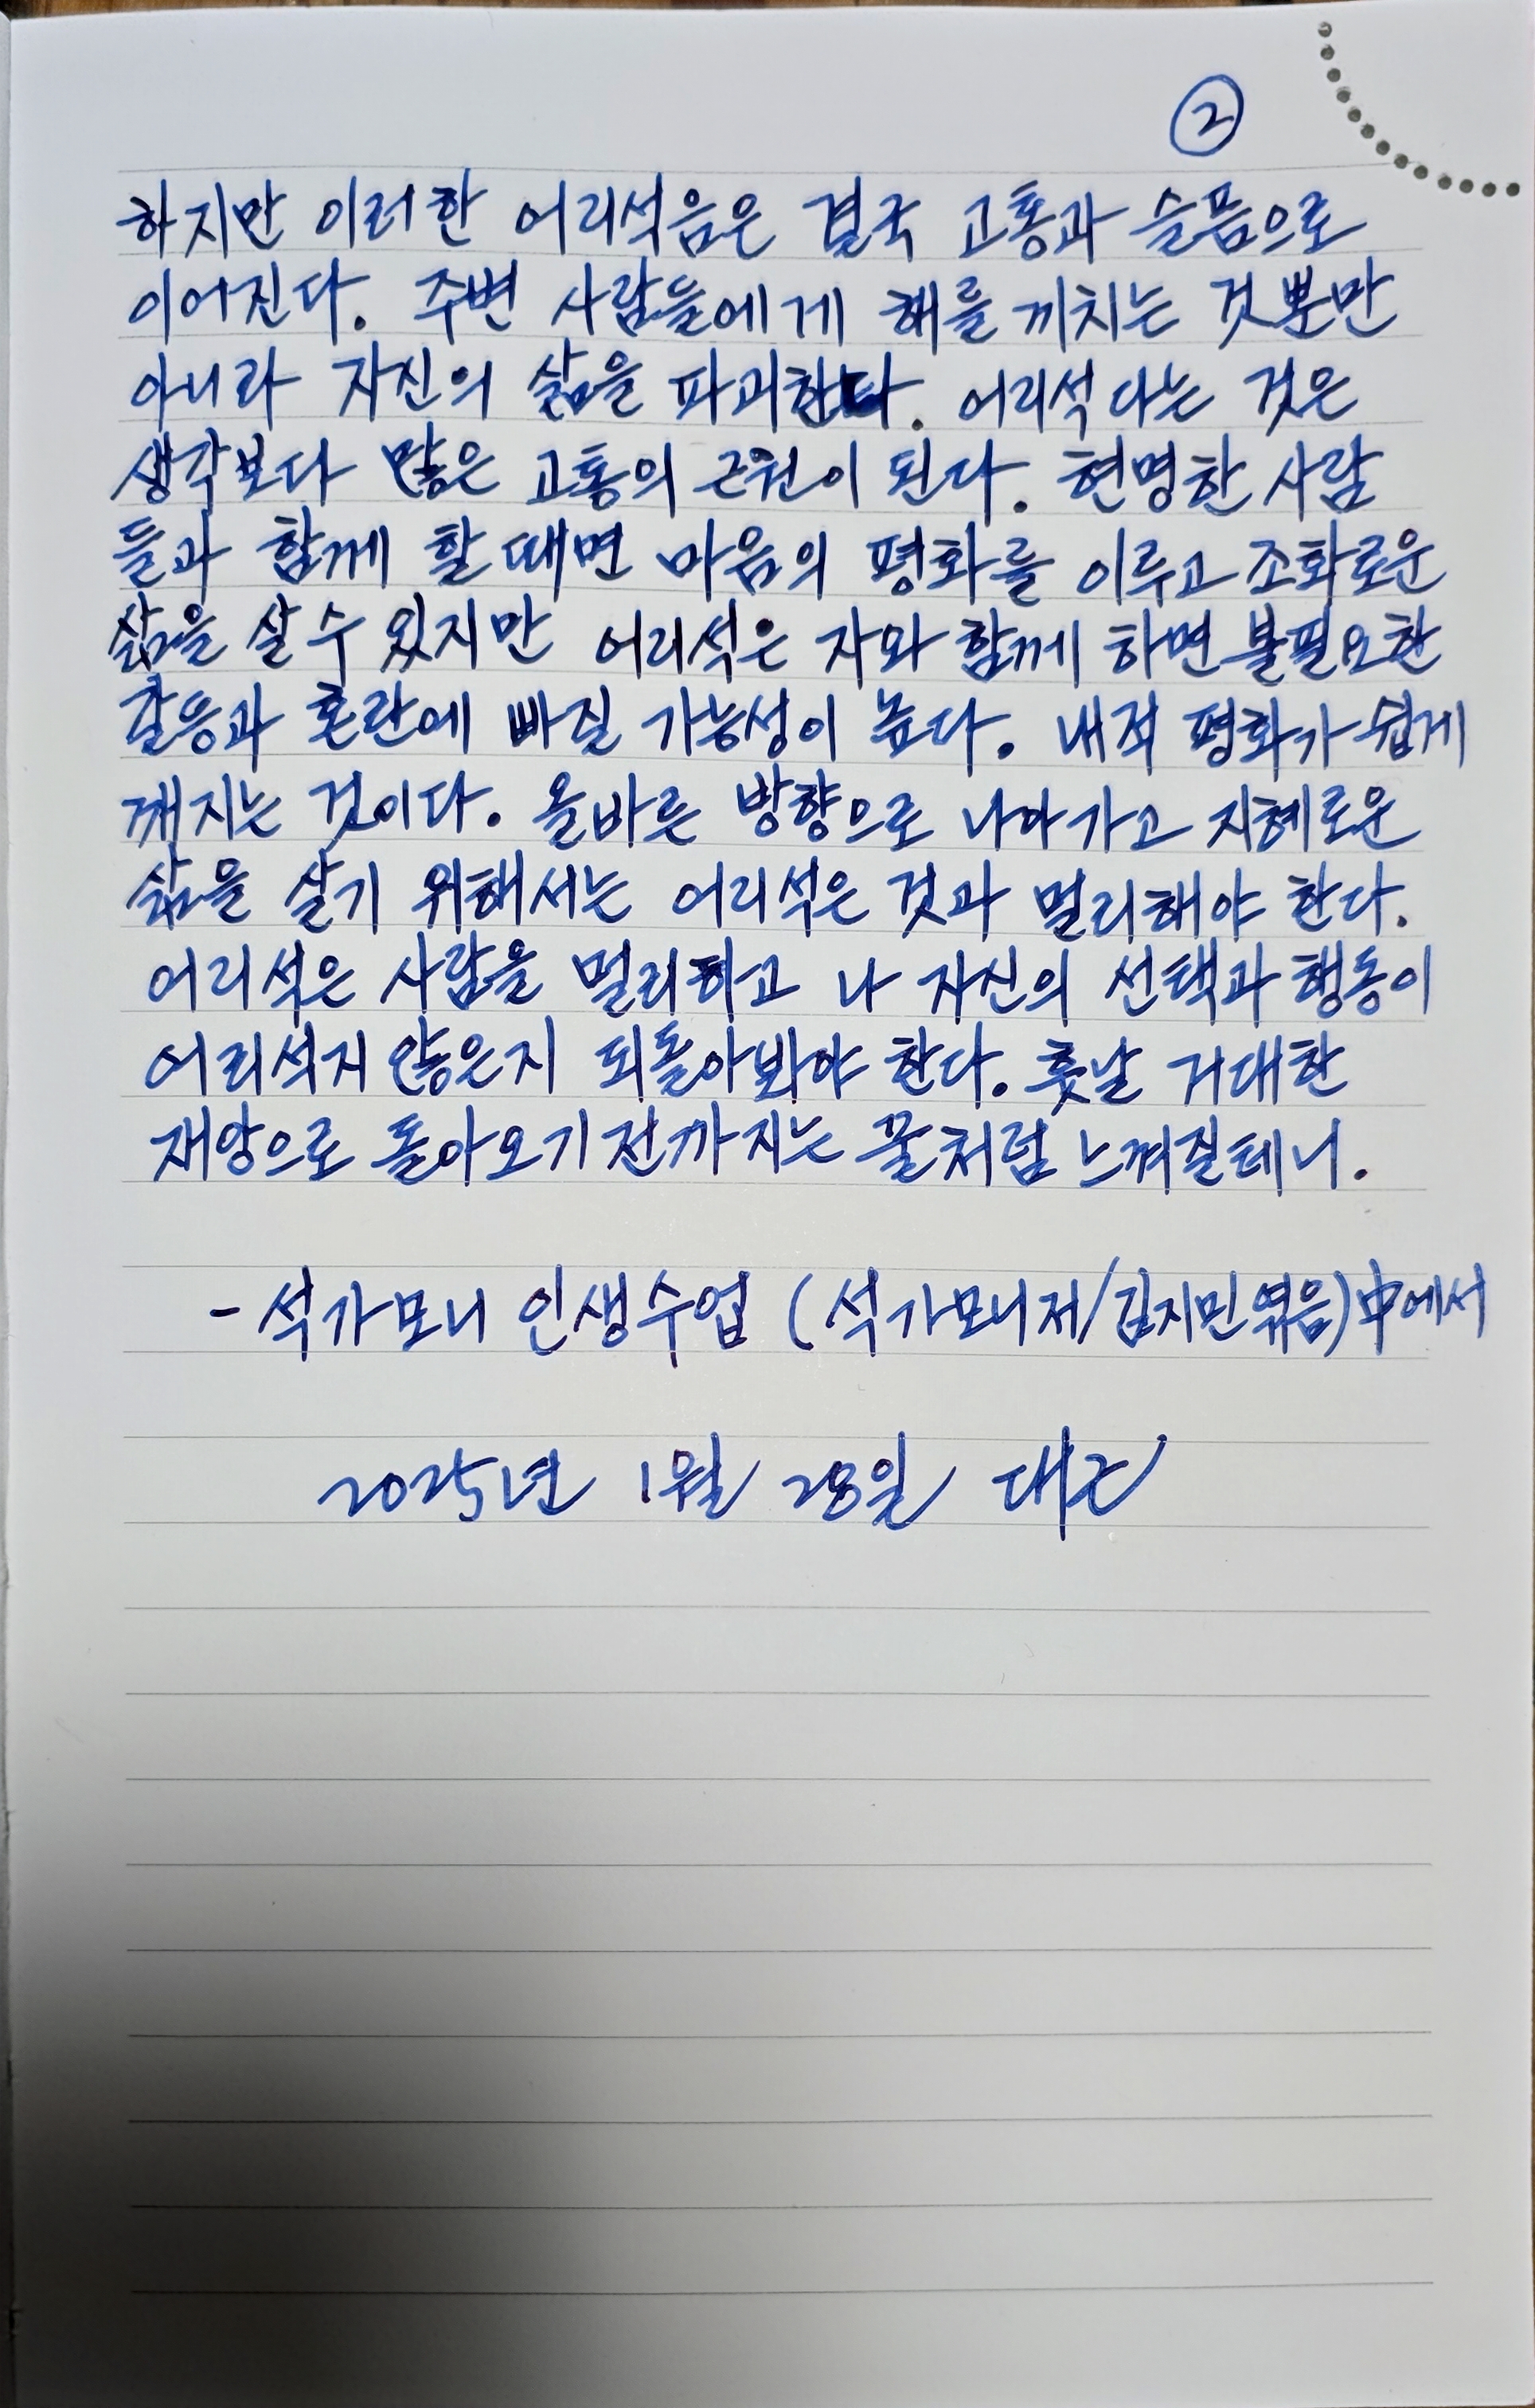 ②
하지만 이러한 어리석음은 결국 고통과 슬픔으로
이어진다. 주변 사람들에게 해를 끼치는 것뿐만
아니라 자신의 삶을 파괴한다. 어리석다는 것은
생각보다 많은 고통의 근원이 된다. 현명한 사람
들과 함께 할 때면 마음의 평화를 이루고 조화로운
삶을 살 수 있지만 어리석은 자와 함께 하면 불필요한
갈등과 혼란에 빠질 가능성이 높다. 내적 평화가 쉽게
깨지는 것이다. 올바른 방향으로 나아가고 지혜로운
삶을 살기 위해서는 어리석은 것과 멀리해야 한다.
어리석은 사람을 멀리하고 나 자신의 선택과 행동이
어리석지 않은지 되돌아봐야 한다. 훗날 거대한
재앙으로 돌아오기 전까지는 꿀처럼 느껴질테니.
- 석가모니 인생수업 (석가모니저/김지민엮음)中에서
2025년 1월 28일 대근